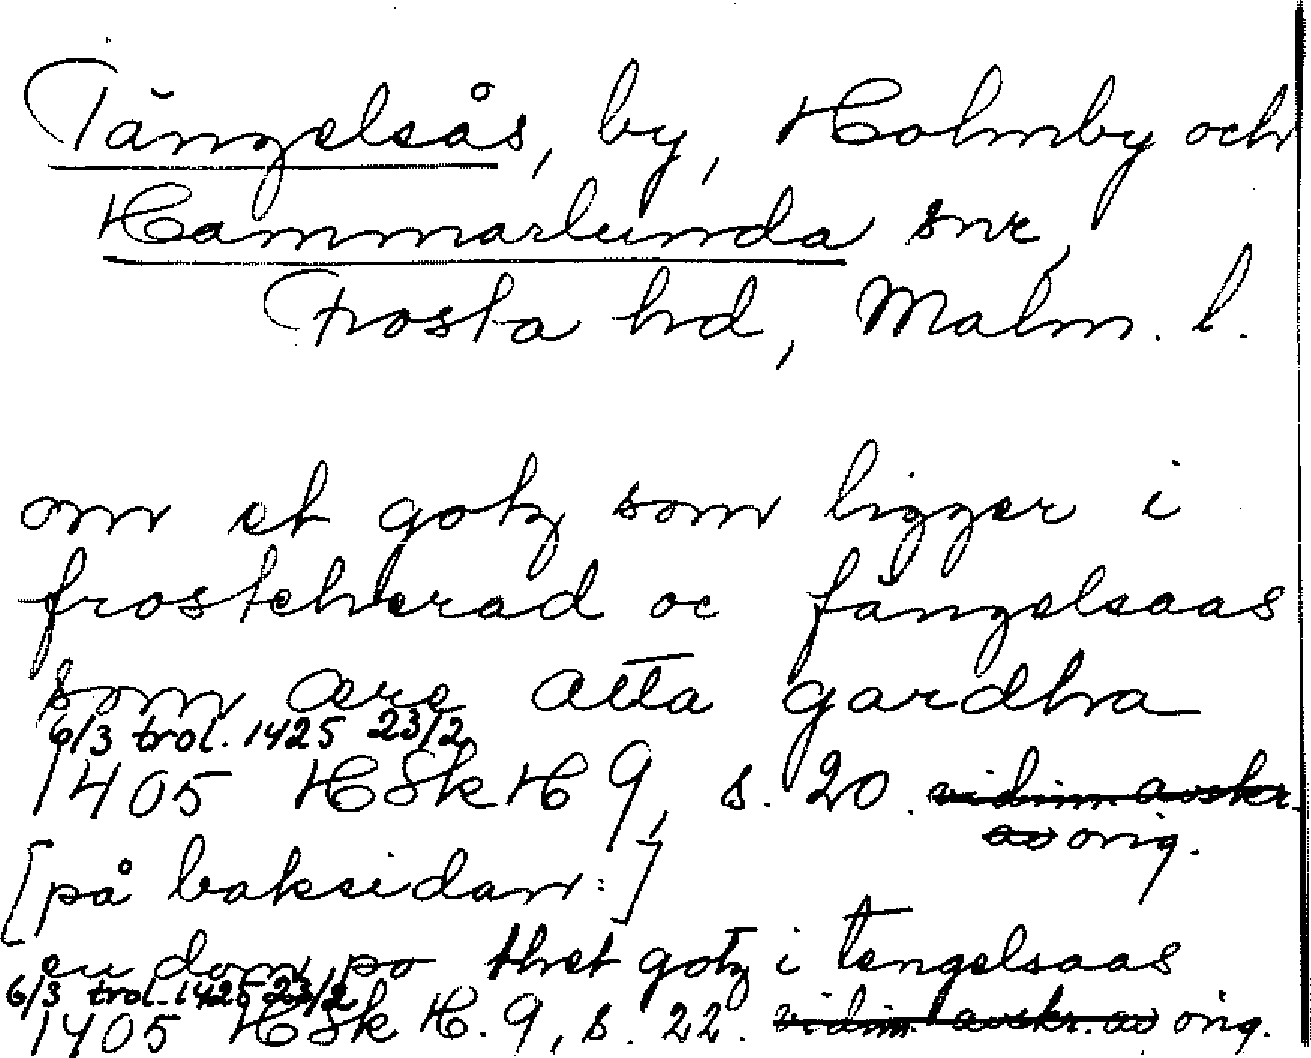 Tängelsås, by, Holmby och
Hammarlunda snr,
Frosta hd, Malm. l.
om et gotz som ligger i
frosteherad oc fängelsaas
som ære atta gardha
6/3 trol. 1425 23/2
1405 HSkH 9, s. 20. vidim. avskr.
av orig.
[på baksidan:]
en dom po thet gotz i tengelsaas
6/3 trol. 1425 23/2
1405 HSk H. 9, s. 22. vidim. avskr. av orig.